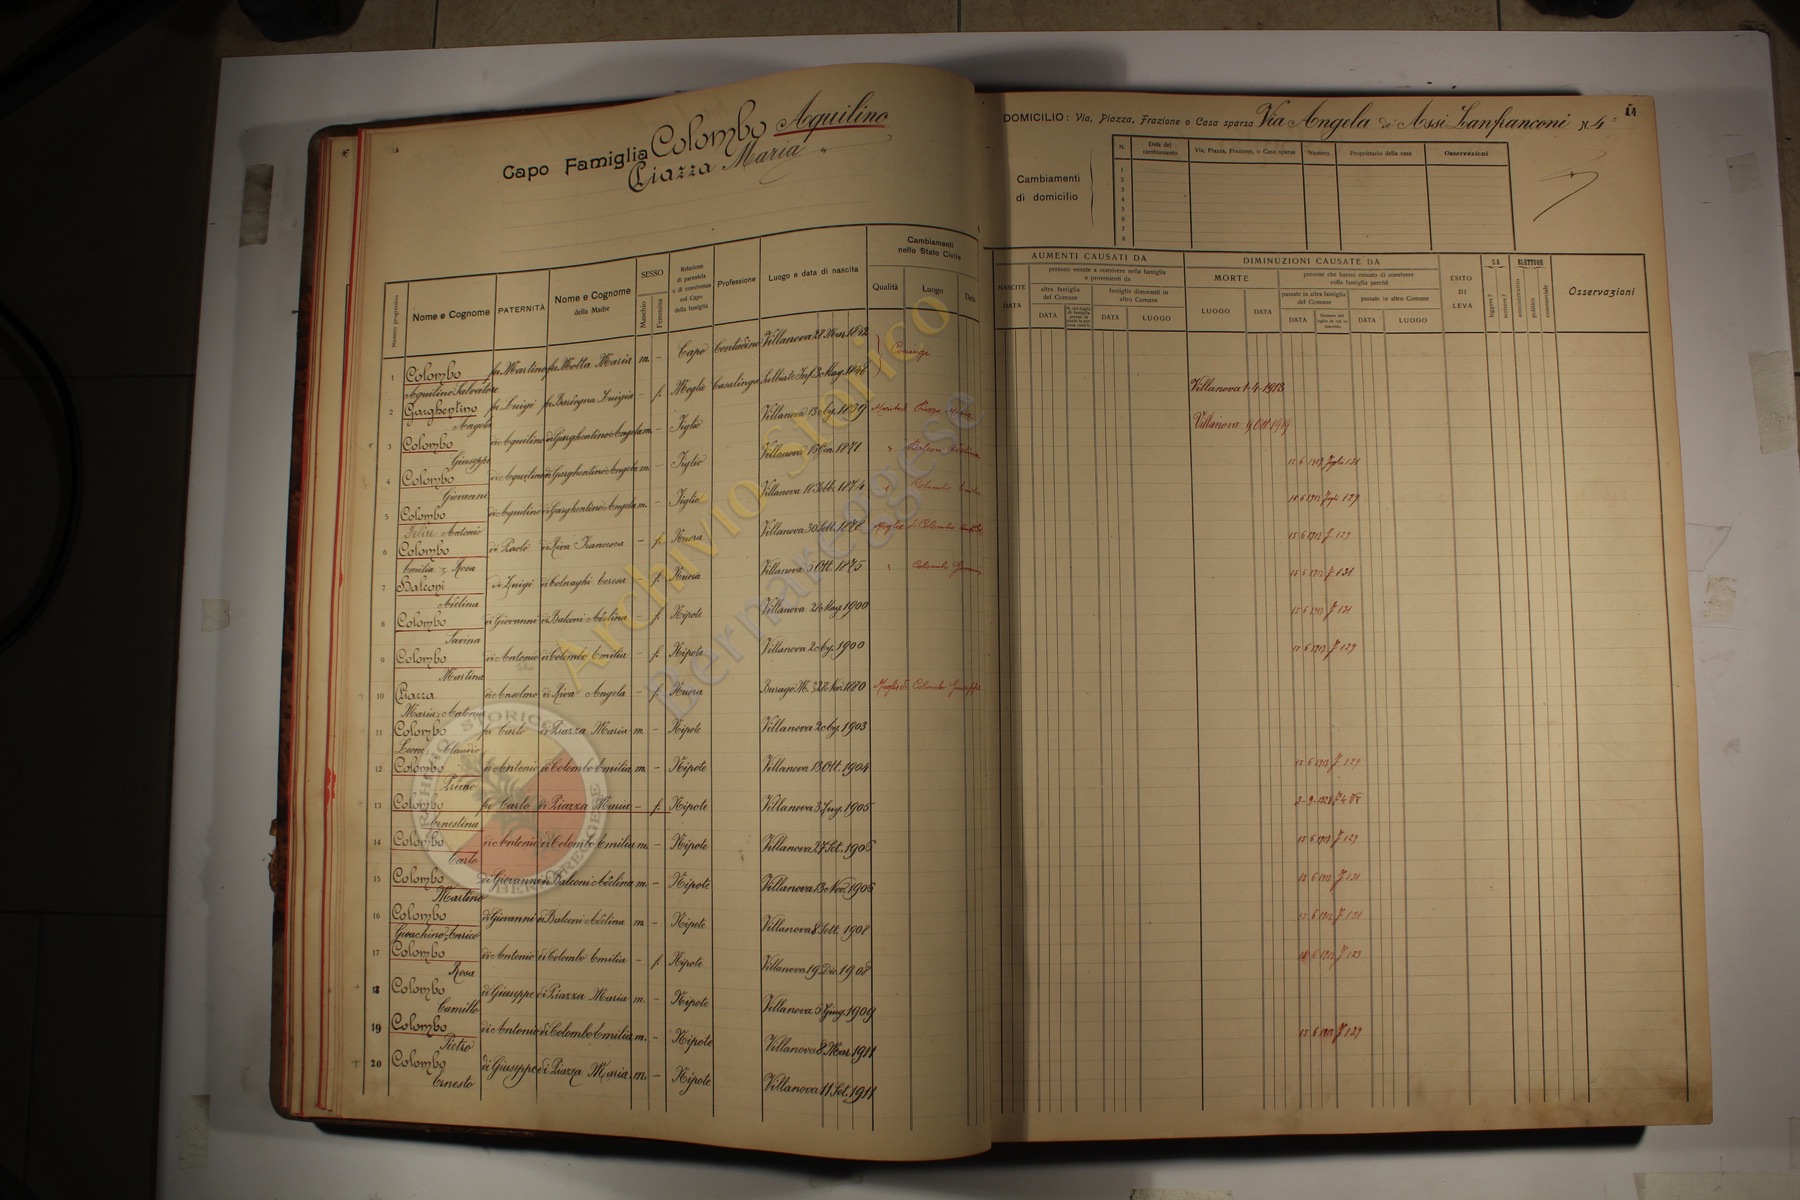 Capo Famiglia Colombo Aquilino
Piazza Maria
DOMICILIO: Via, Piazza, Frazione o Casa sparsa Via Angela de Assi Lanfranconi N. 4
14
Cambiamenti
di domicilio
N. Data del cambiamento Via, Piazza, Frazione, o Casa sparsa Numero Proprietario della casa Osservazioni
1
2
3
4
5
6
7
8
Numero progressivo Nome e Cognome PATERNITÀ Nome e Cognome della Madre SESSO Maschio Femmina Relazione di parentela o di convivenza col Capo della famiglia Professione Luogo e data di nascita Cambiamenti nello Stato Civile Qualità Luogo Data
AUMENTI CAUSATI DA
NASCITE DATA persone venute a convivere nella famiglia e provenienti da
altra famiglia del Comune DATA famiglie dimoranti in altro Comune DATA LUOGO
DIMINUZIONI CAUSATE DA
MORTE LUOGO DATA persone che hanno cessato di convivere colla famiglia perchè
passate in altra famiglia del Comune DATA passate in altro Comune DATA LUOGO
ESITO DI LEVA SA leggere? scrivere? ELETTORE amministrativo politico commerciale Osservazioni
1 Colombo Aquilino Salvatore fu Martino fu Motta Maria m. – Capo Contadino Villanova 1842 Coniuge Villanova 1-4-1913
2 Garghentino Angela fu Luigi fu Luigia – f. Moglie Casalinga Mag. 1848 Villanova 9 Ott. 1919
3 Colombo Giuseppe di Aquilino di Garghentino Angela m. – Figlio Villanova Piazza Maria
4 Colombo Giovanni di Aquilino di Garghentino Angela m. – Figlio Villanova 15 Gen. 1871 " Balconi Adelina 15-6-1913 Foglio 131
5 Colombo Antonio di Aquilino di Garghentino Angela m. – Figlio Villanova 18 Febb. 1874 " Colombo Emilia 15-6-1913 Fogl. 129
6 Colombo Emilia, Rosa di Paolo di Riva Francesca – f. Nuora Villanova 30 Sett. 1878 Moglie di Colombo 15-6-1913 F. 129
7 Balconi Adelina di Luigi di Colnaghi Teresa f. Nuora Villanova 5 Ott. 1875 " Colombo Giovanni 15-6-1913 F. 131
8 Colombo Savina di Giovanni di Balconi Adelina f. Nipote Villanova Mag. 1900 15-6-1913 F. 131
9 Colombo Martina di Antonio di Colombo Emilia – f. Nipote Villanova 2 1900 15-6-1913 F. 129
10 Piazza Maria, Antonia di Anselmo di Riva Angela – f. Nuora Burago M. 22 Nov. 1880 Moglie di Colombo Giuseppe
11 Colombo Leone, Claudio fu Carlo di Piazza Maria m. – Nipote Villanova 2 1903
12 Colombo Primo di Antonio di Colombo Emilia m. – Nipote Villanova 13 Ott. 1904 15-6-1913 F. 129
13 Colombo Ernestina fu Carlo di Piazza Maria – f. Nipote Villanova 3 1905
14 Colombo Carlo di Antonio di Colombo Emilia m. – Nipote Villanova 27 Set. 1906 15-6-1913 F. 129
15 Colombo Martino di Giovanni di Balconi Adelina m. – Nipote Villanova 13 Nov. 1906 F. 131
16 Colombo Gioachino, Enrico di Giovanni di Balconi Adelina m – Nipote Villanova 8 Sett. 1908 F. 131
17 Colombo Rosa di Antonio di Colombo Emilia – f. Nipote Villanova 19 Dic. 1908
18 Colombo Camillo di Giuseppe di Piazza Maria m. – Nipote Villanova 5 Giug. 1909
19 Colombo Pietro di Antonio di Colombo Emilia m. – Nipote Villanova 8 Mar. 1911 15-6-1913 F. 129
20 Colombo Ernesto di Giuseppe di Piazza Maria m. – Nipote Villanova 11 Set. 1911
Archivio Storico
Bernareggese
ARCHIVIO STORICO BERNAREGGESE